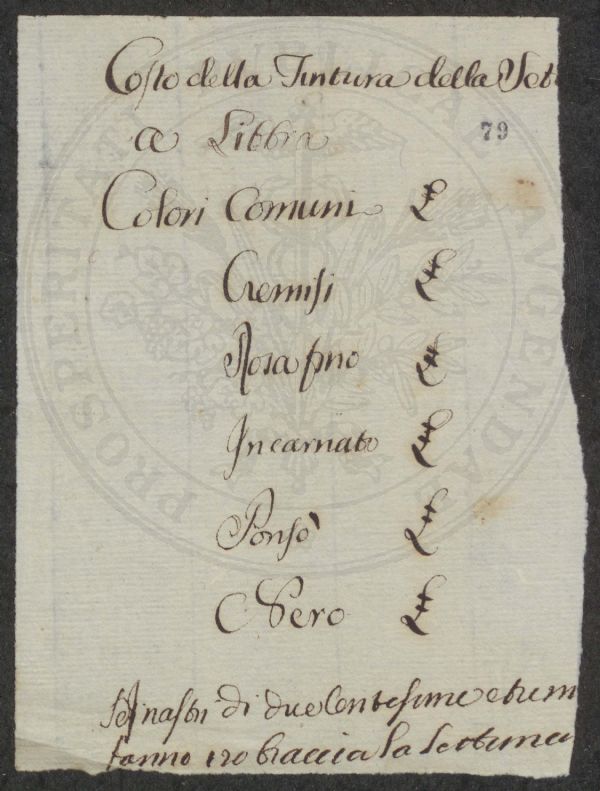 Costo della Tintura della Set
a Libbra
79
Colori Comuni £
Cremisi £
Rosa fino £
Incarnato £
Ponsò £
Nero £
Nastri di due Centesime e tre m
fanno 120 braccia la Settima
PROSPERITATI PUBLICAE AUGENDAE